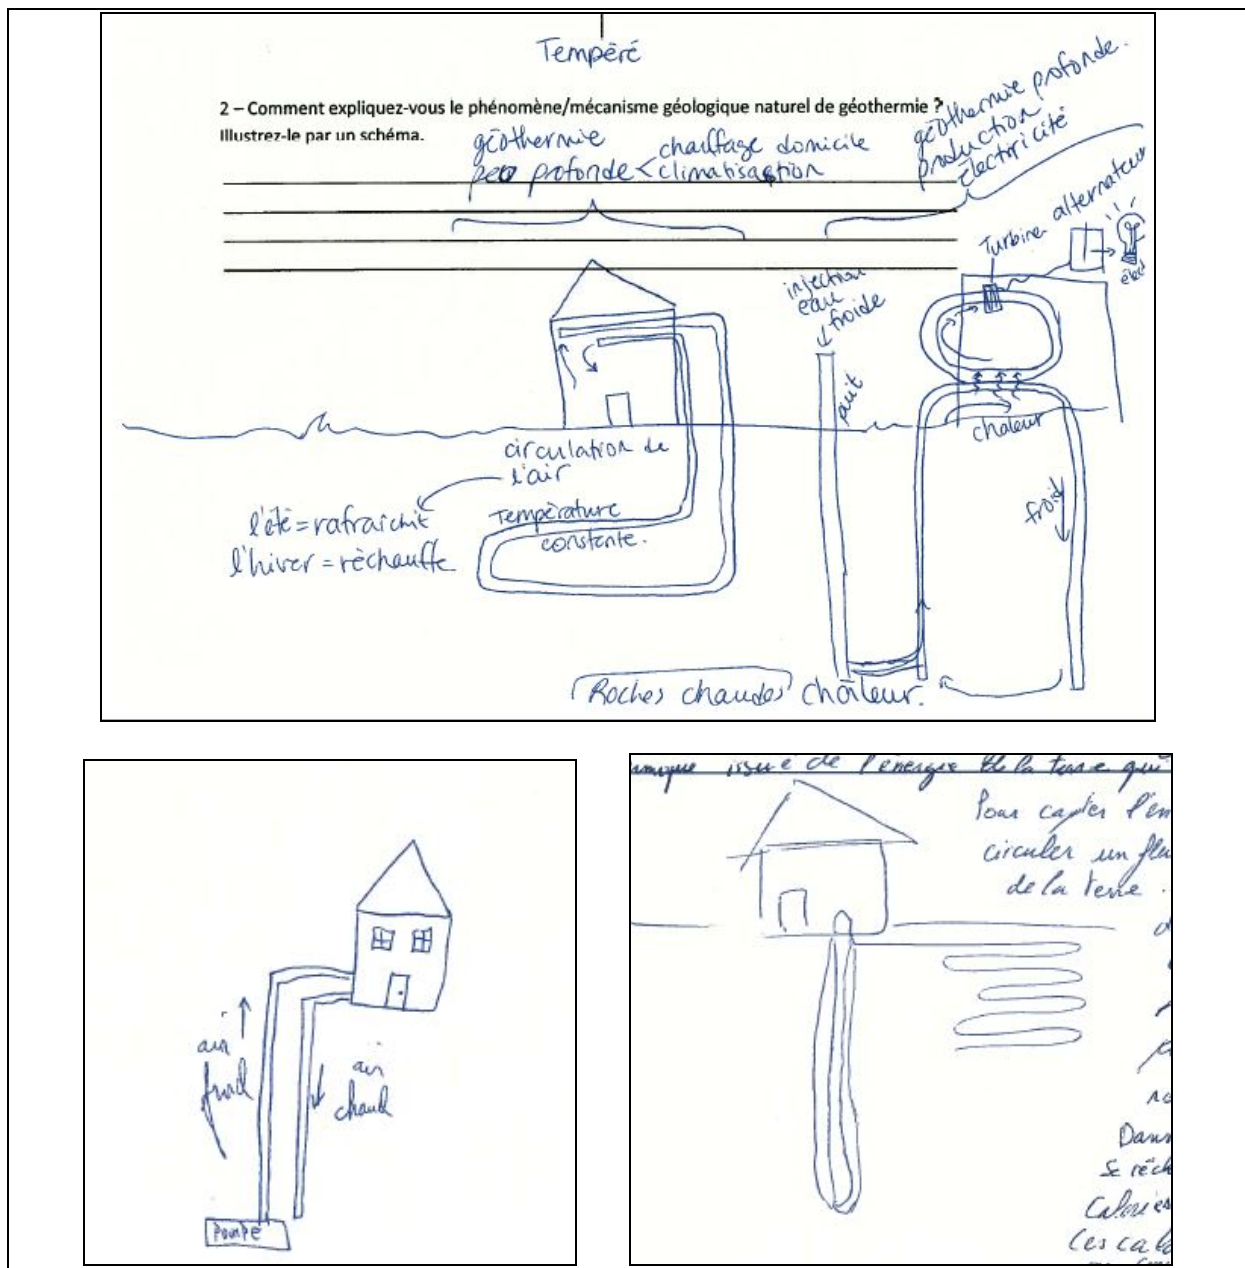 Tempéré
2 – Comment expliquez-vous le phénomène/mécanisme géologique naturel de géothermie ?
Illustrez-le par un schéma.
géothermie
peu profonde < chauffage domicile
climatisation
géothermie profonde.
production
électricité
Turbine alternateur
élec
injection
eau
froide
puit
chaleur
froid
circulation de
l'air
l'été = rafraichit
l'hiver = réchauffe
Température
constante.
Roches chaudes chaleur.
air
froid
air
chaud
POMPE
issue de l'énergie de la terre qui
Pour capter l'en
circuler un flu
de la terre.
Dans
Se réch
Calories
Ces calo